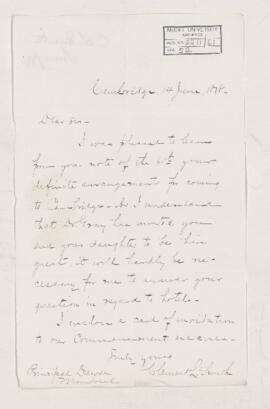 McGILL UNIVERSITY
ARCHIVES
ACC. NO. 2211/61
REF. 52
Cambridge, 14 June, 1878.
Dear Sir –
I was pleased to learn
from your note of the 10th your
definite arrangements for coming
to Cambridge. As I understand
that Dr. Gray has invited you
and your daughter to be his
guest, it will hardly be ne-
cessary for me to answer your
question in regard to hotels.
I inclose a card of invitation
to our Commencement exercises.
Truly yours
Clement L. Smith
Principal Dawson
Montreal